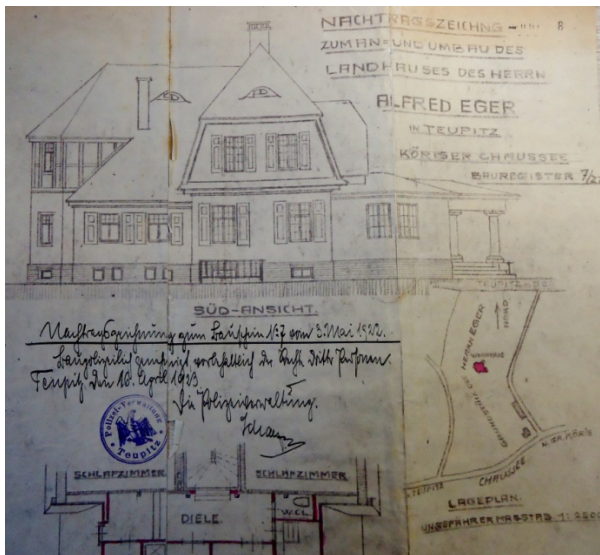 NACHTRAGSZEICHNG 8
ZUM AN= UND UMBAU DES
LANDHAUSES DES HERRN
ALFRED EGER
IN TEUPITZ
KÖRISER CHAUSSEE
BAUREGISTER 7/22
SÜD-ANSICHT.
Nachtragszeichnung zum Bauschein № 7 vom 3. Mai 1922.
Baupolizeilich genehmigt vorbehaltlich der Rechte dritter Personen.
Teupitz, den 16. April 1923
Die Polizeiverwaltung.
Polizei-Verwaltung
Teupitz
SCHLAFZIMMER
SCHLAFZIMMER
DIELE.
W.CL.
NORD
GRUNDSTÜCK DES HERRN EGER
N. GR. KÖRIS
CHAUSSEE
LAGEPLAN.
UNGEFÄHRER MASSTAB 1:2500